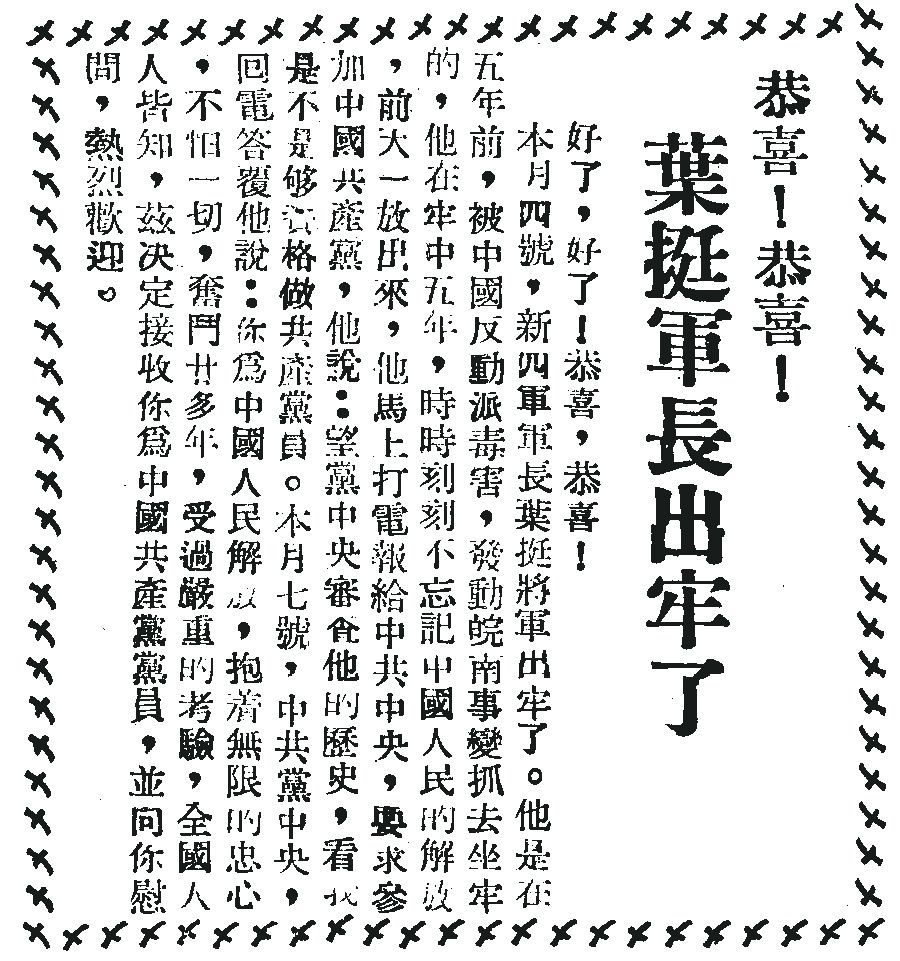 恭喜！恭喜！
葉挺軍長出牢了
好了，好了！恭喜，恭喜！
本月四號，新四軍軍長葉挺將軍出牢了。他是在
五年前，被中國反動派毒害，發動皖南事變抓去坐牢
的，他在牢中五年，時時刻刻不忘記中國人民的解放
，前天一放出來，他馬上打電報給中共中央，要求參
加中國共產黨，他說：望黨中央審查他的歷史，看我
是不是够資格做共產黨員。本月七號，中共黨中央，
回電答覆他說：你爲中國人民解放，抱着無限的忠心
，不怕一切，奮鬥廿多年，受過嚴重的考驗，全國人
人皆知，茲决定接收你爲中國共產黨黨員，並向你慰
問，熱烈歡迎。